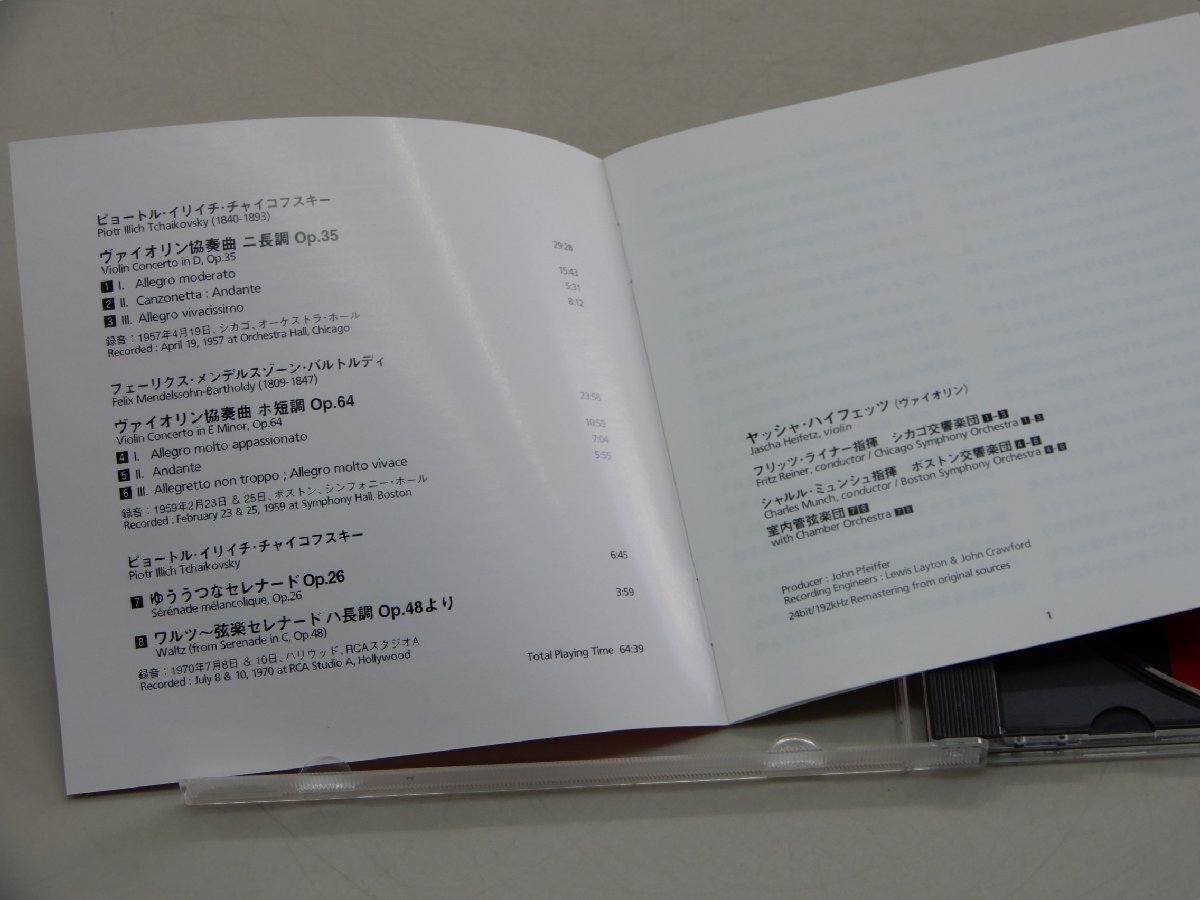 ピョートル・イリイチ・チャイコフスキー
Piotr Illich Tchaikovsky (1840-1893)
ヴァイオリン協奏曲 ニ長調 Op.35 29:28
Violin Concerto in D, Op.35
1 I. Allegro moderato 15:43
2 II. Canzonetta : Andante 5:31
3 III. Allegro vivacissimo 8:12
録音：1957年4月19日、シカゴ、オーケストラ・ホール
Recorded : April 19, 1957 at Orchestra Hall, Chicago
フェーリクス・メンデルスゾーン・バルトルディ
Felix Mendelssohn-Bartholdy (1809-1847)
ヴァイオリン協奏曲 ホ短調 Op.64 23:58
Violin Concerto in E Minor, Op.64
4 I. Allegro molto appassionato 10:59
5 II. Andante 7:04
6 III. Allegretto non troppo ; Allegro molto vivace 5:55
録音：1959年2月23日 & 25日、ボストン、シンフォニー・ホール
Recorded : February 23 & 25, 1959 at Symphony Hall, Boston
ピョートル・イリイチ・チャイコフスキー
Piotr Illich Tchaikovsky
7 ゆううつなセレナード Op.26 6:45
Sérénade mélancolique, Op.26
8 ワルツ〜弦楽セレナード ハ長調 Op.48より 3:59
Waltz (from Serenade in C, Op.48)
録音：1970年7月8日 & 10日、ハリウッド、RCAスタジオA
Recorded : July 8 & 10, 1970 at RCA Studio A, Hollywood
Total Playing Time 64:39
ヤッシャ・ハイフェッツ (ヴァイオリン)
Jascha Heifetz, violin
フリッツ・ライナー指揮 シカゴ交響楽団 1-3
Fritz Reiner, conductor / Chicago Symphony Orchestra 1-3
シャルル・ミュンシュ指揮 ボストン交響楽団 4-6
Charles Munch, conductor / Boston Symphony Orchestra 4-6
室内管弦楽団 7 8
with Chamber Orchestra 7 8
Producer : John Pfeiffer
Recording Engineers : Lewis Layton & John Crawford
24bit/192kHz Remastering from original sources
1